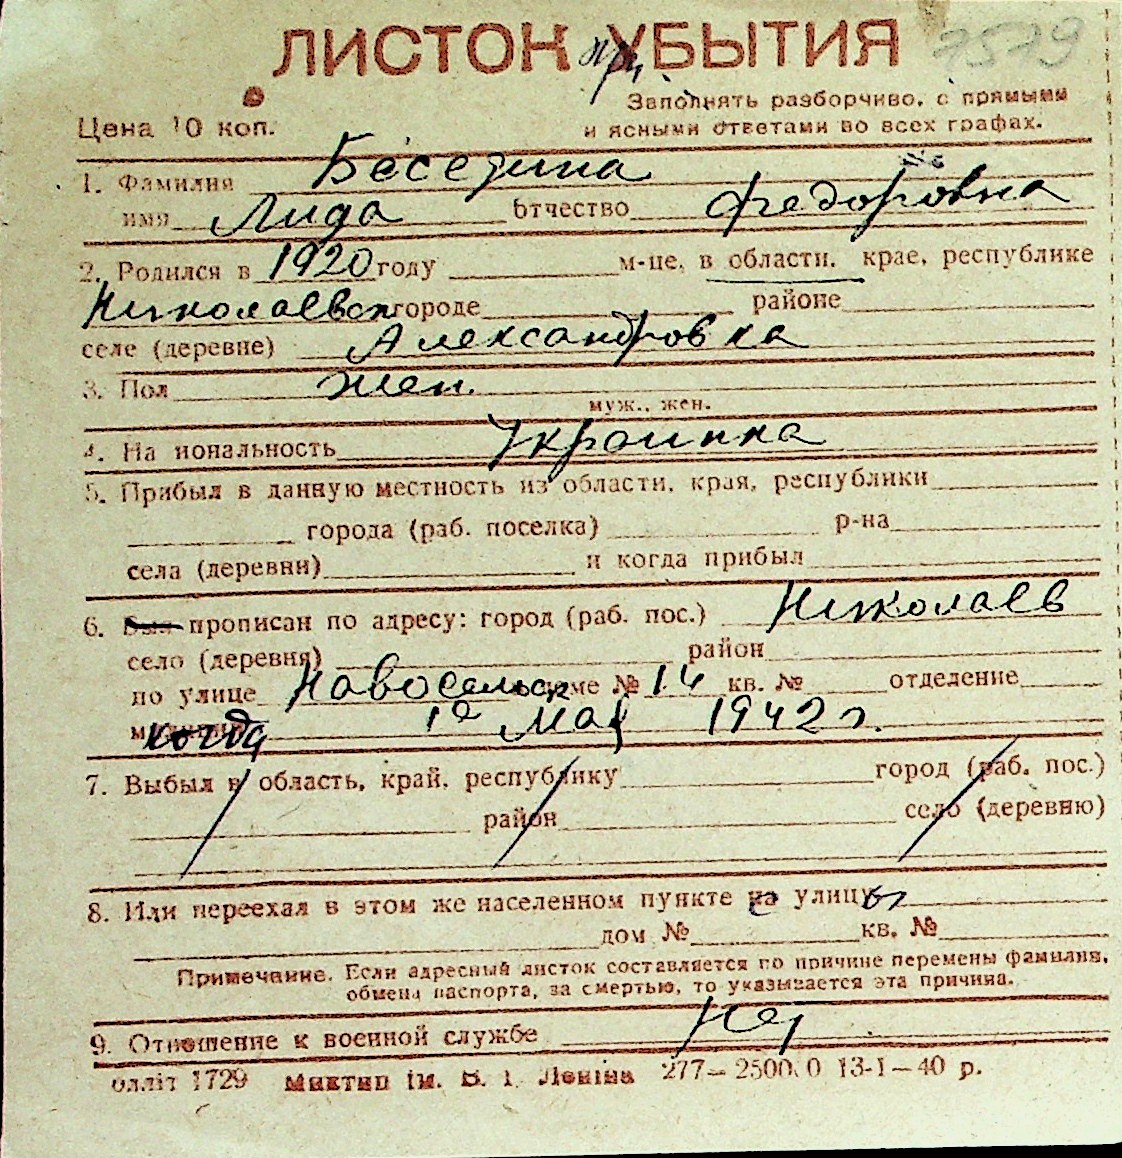 7579
ЛИСТОК при УБЫТИЯ
Заполнять разборчиво, с прямыми
Цена 10 коп.
и ясными ответами во всех графах.
1. Фамилия Беседина
имя Лида отчество Федоровна
2. Родился в 1920 году м-це, в области, крае, республике
Николаевск городе районе
селе (деревне) Александровка
3. Пол жен.
муж., жен.
4. На иональность Украинка
5. Прибыл в данную местность из области, края, республики
города (раб. поселка) р-на
села (деревни) и когда прибыл
6. Был прописан по адресу: город (раб. пос.) Николаев
село (деревня) район
по улице Новосельск доме № 14 кв. № отделение
когда 1го Мая 1942 г.
7. Выбыл в область, край, республику город (раб. пос.)
район село (деревню)
8. Или переехал в этом же населенном пункте с улицы
дом № кв. №
Примечание. Если адресный листок составляется по причине перемены фамилии,
обмена паспорта, за смертью, то указывается эта причина.
9. Отношение к военной службе Нет
олліт 1729 Миктип ім. В. І. Леніна 277—2500.0 13-1—40 р.